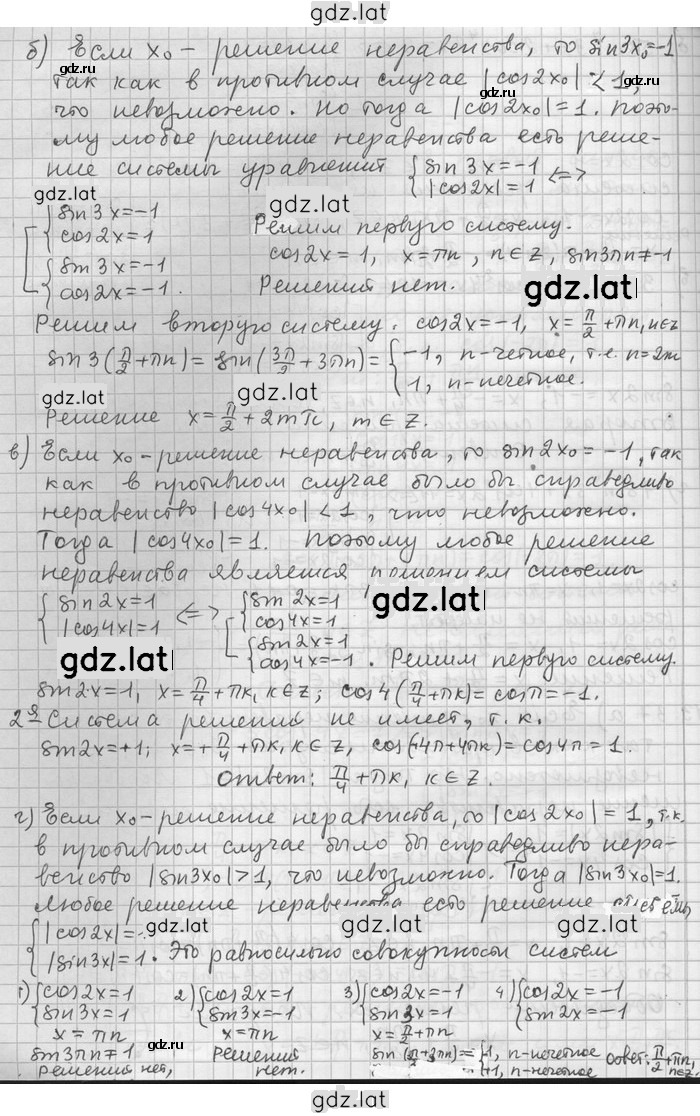 gdz.lat
б) Если x₀ – решение неравенства, то sin3x₀=-1
так как в противном случае |cos2x₀| < 1,
что невозможно. Но тогда |cos2x₀|=1. Поэто-
му любое решение неравенства есть реше-
ние системы уравнений { sin3x=-1 |cos2x|=1 <=>
[ { sin3x=-1 cos2x=1 Решим первую систему.
cos2x=1, x=πn, n∈Z, sin3πn≠-1
{ sin3x=-1 cos2x=-1. Решений нет.
Решим вторую систему. cos2x=-1, x=π/2+πn, n∈Z
sin3(π/2+πn)=sin(3π/2+3πn)= { -1, n-четное, т.е. n=2m
1, n-нечетное.
Решение x=π/2+2mπ, m∈Z.
в) Если x₀-решение неравенства, то sin2x₀=-1, так
как в противном случае было бы справедливо
неравенство |cos4x₀|<1, что невозможно.
Тогда |cos4x₀|=1. Поэтому любое решение
неравенства является системы
{ sin2x=1 |cos4x|=1 <=> [ { sin2x=1 cos4x=1
{ sin2x=1 cos4x=-1. Решим первую систему.
sin2x=1, x=π/4+πk, k∈Z; cos4(π/4+πk)=cosπ=-1.
2я система решений не имеет, т.к.
sin2x=+1; x=+π/4+πk, k∈Z, cos(+4π+4πk)=cos4π=1.
Ответ: π/4+πk, k∈Z.
г) Если x₀-решение неравенства, то |cos2x₀|=1, т.к.
в противном случае было бы справедливо нера-
венство |sin3x₀|>1, что невозможно. Тогда |sin3x₀|=1.
Любое решение неравенства есть решение
{ |cos2x|= |sin3x|=1. Это равносильно совокупности систем
1) { cos2x=1 sin3x=1 2) { cos2x=1 sin3x=-1 3) { cos2x=-1 sin3x=1 4) { cos2x=-1 sin2x=-1
x=πn x=πn x=π/2+πn
sin3πn≠1 Решений sin(π/2+3πn)= { -1, n-нечетное Ответ: π/2+πn,
Решений нет, нет. +1, n-нечетное n∈Z.
gdz.lat